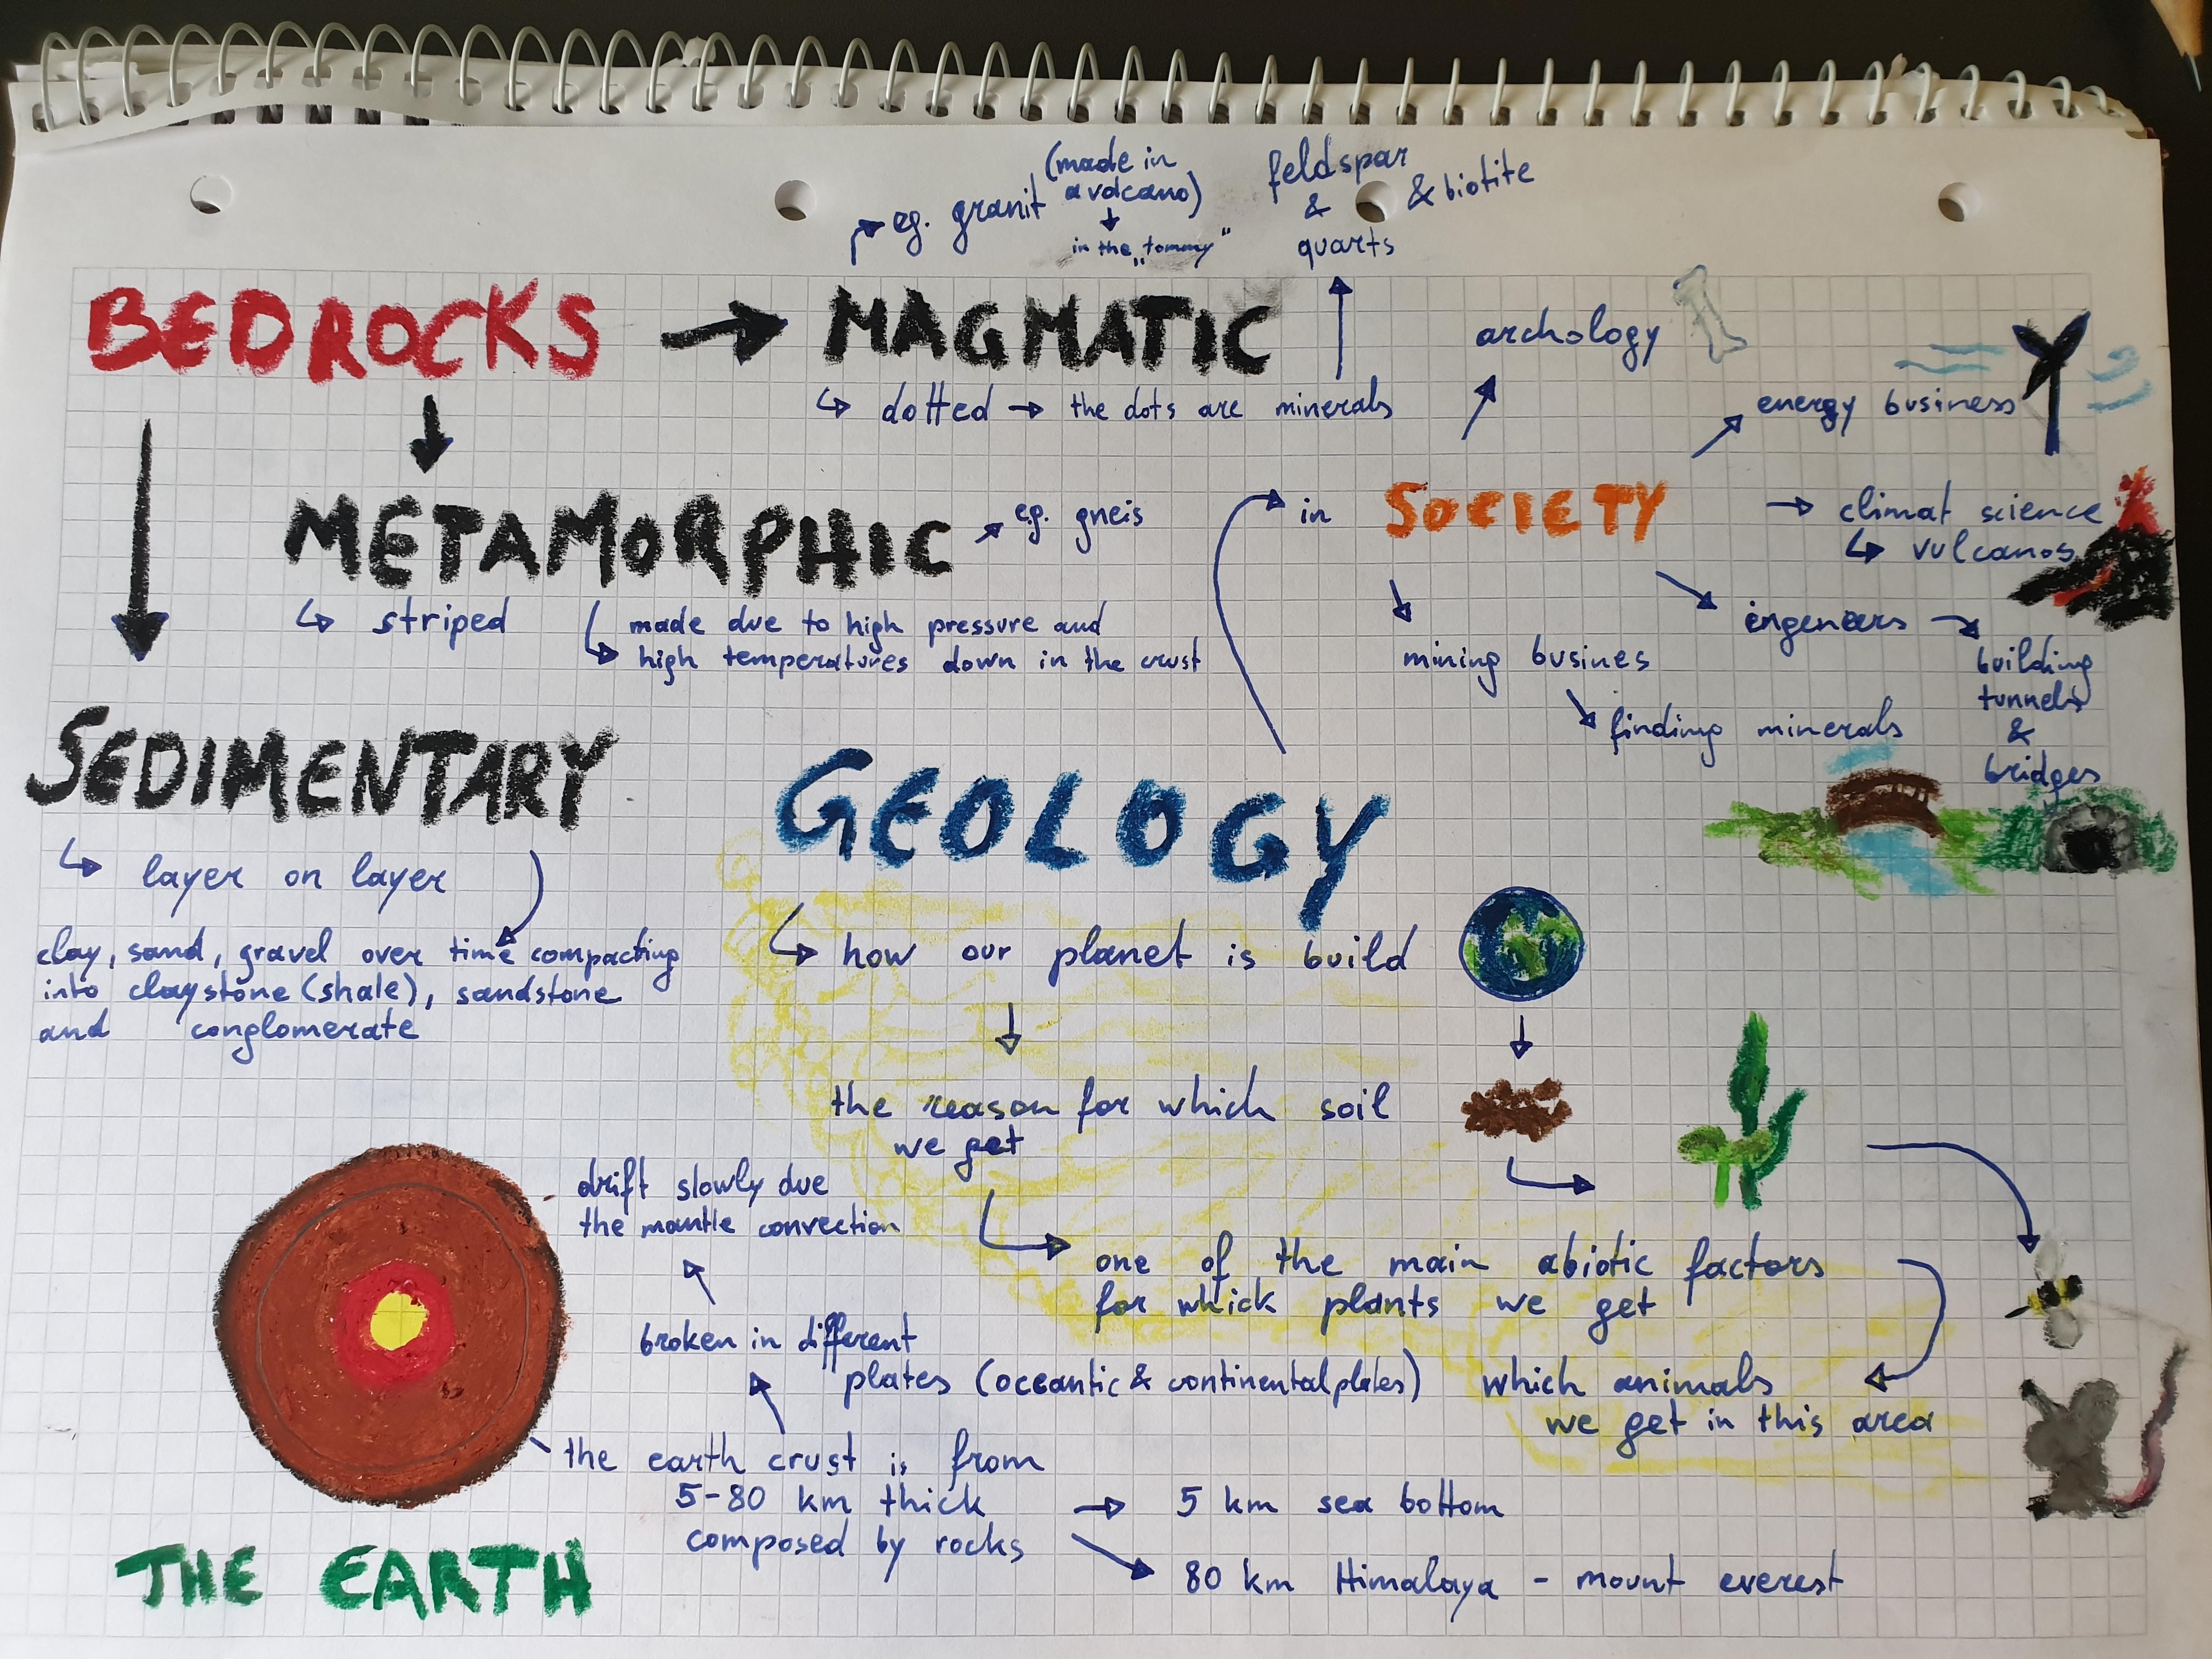 eg. granit (made in
a volcano)
in the „tommy"
feldspar
&
quarts
& biotite
BEDROCKS → MAGMATIC
↳ dotted → the dots are minerals
archology
energy business
METAMORPHIC
e.g. gneis
↳ striped
made due to high pressure and
high temperatures down in the crust
in SOCIETY
→ climat science
↳ vulcanos
engeneers →
building
tunnels
&
bridges
mining busines
finding minerals
SEDIMENTARY
↳ layer on layer
clay, sand, gravel over time compacting
into claystone (shale), sandstone
and conglomerate
GEOLOGY
↳ how our planet is build
the reason for which soil
we get
one of the main abiotic factors
for which plants we get
which animals
we get in this area
drift slowly due
the mantle convection
broken in different
plates (oceantic & continental plates)
the earth crust is from
5-80 km thick
composed by rocks
→ 5 km sea bottom
80 km Himalaya - mount everest
THE EARTH